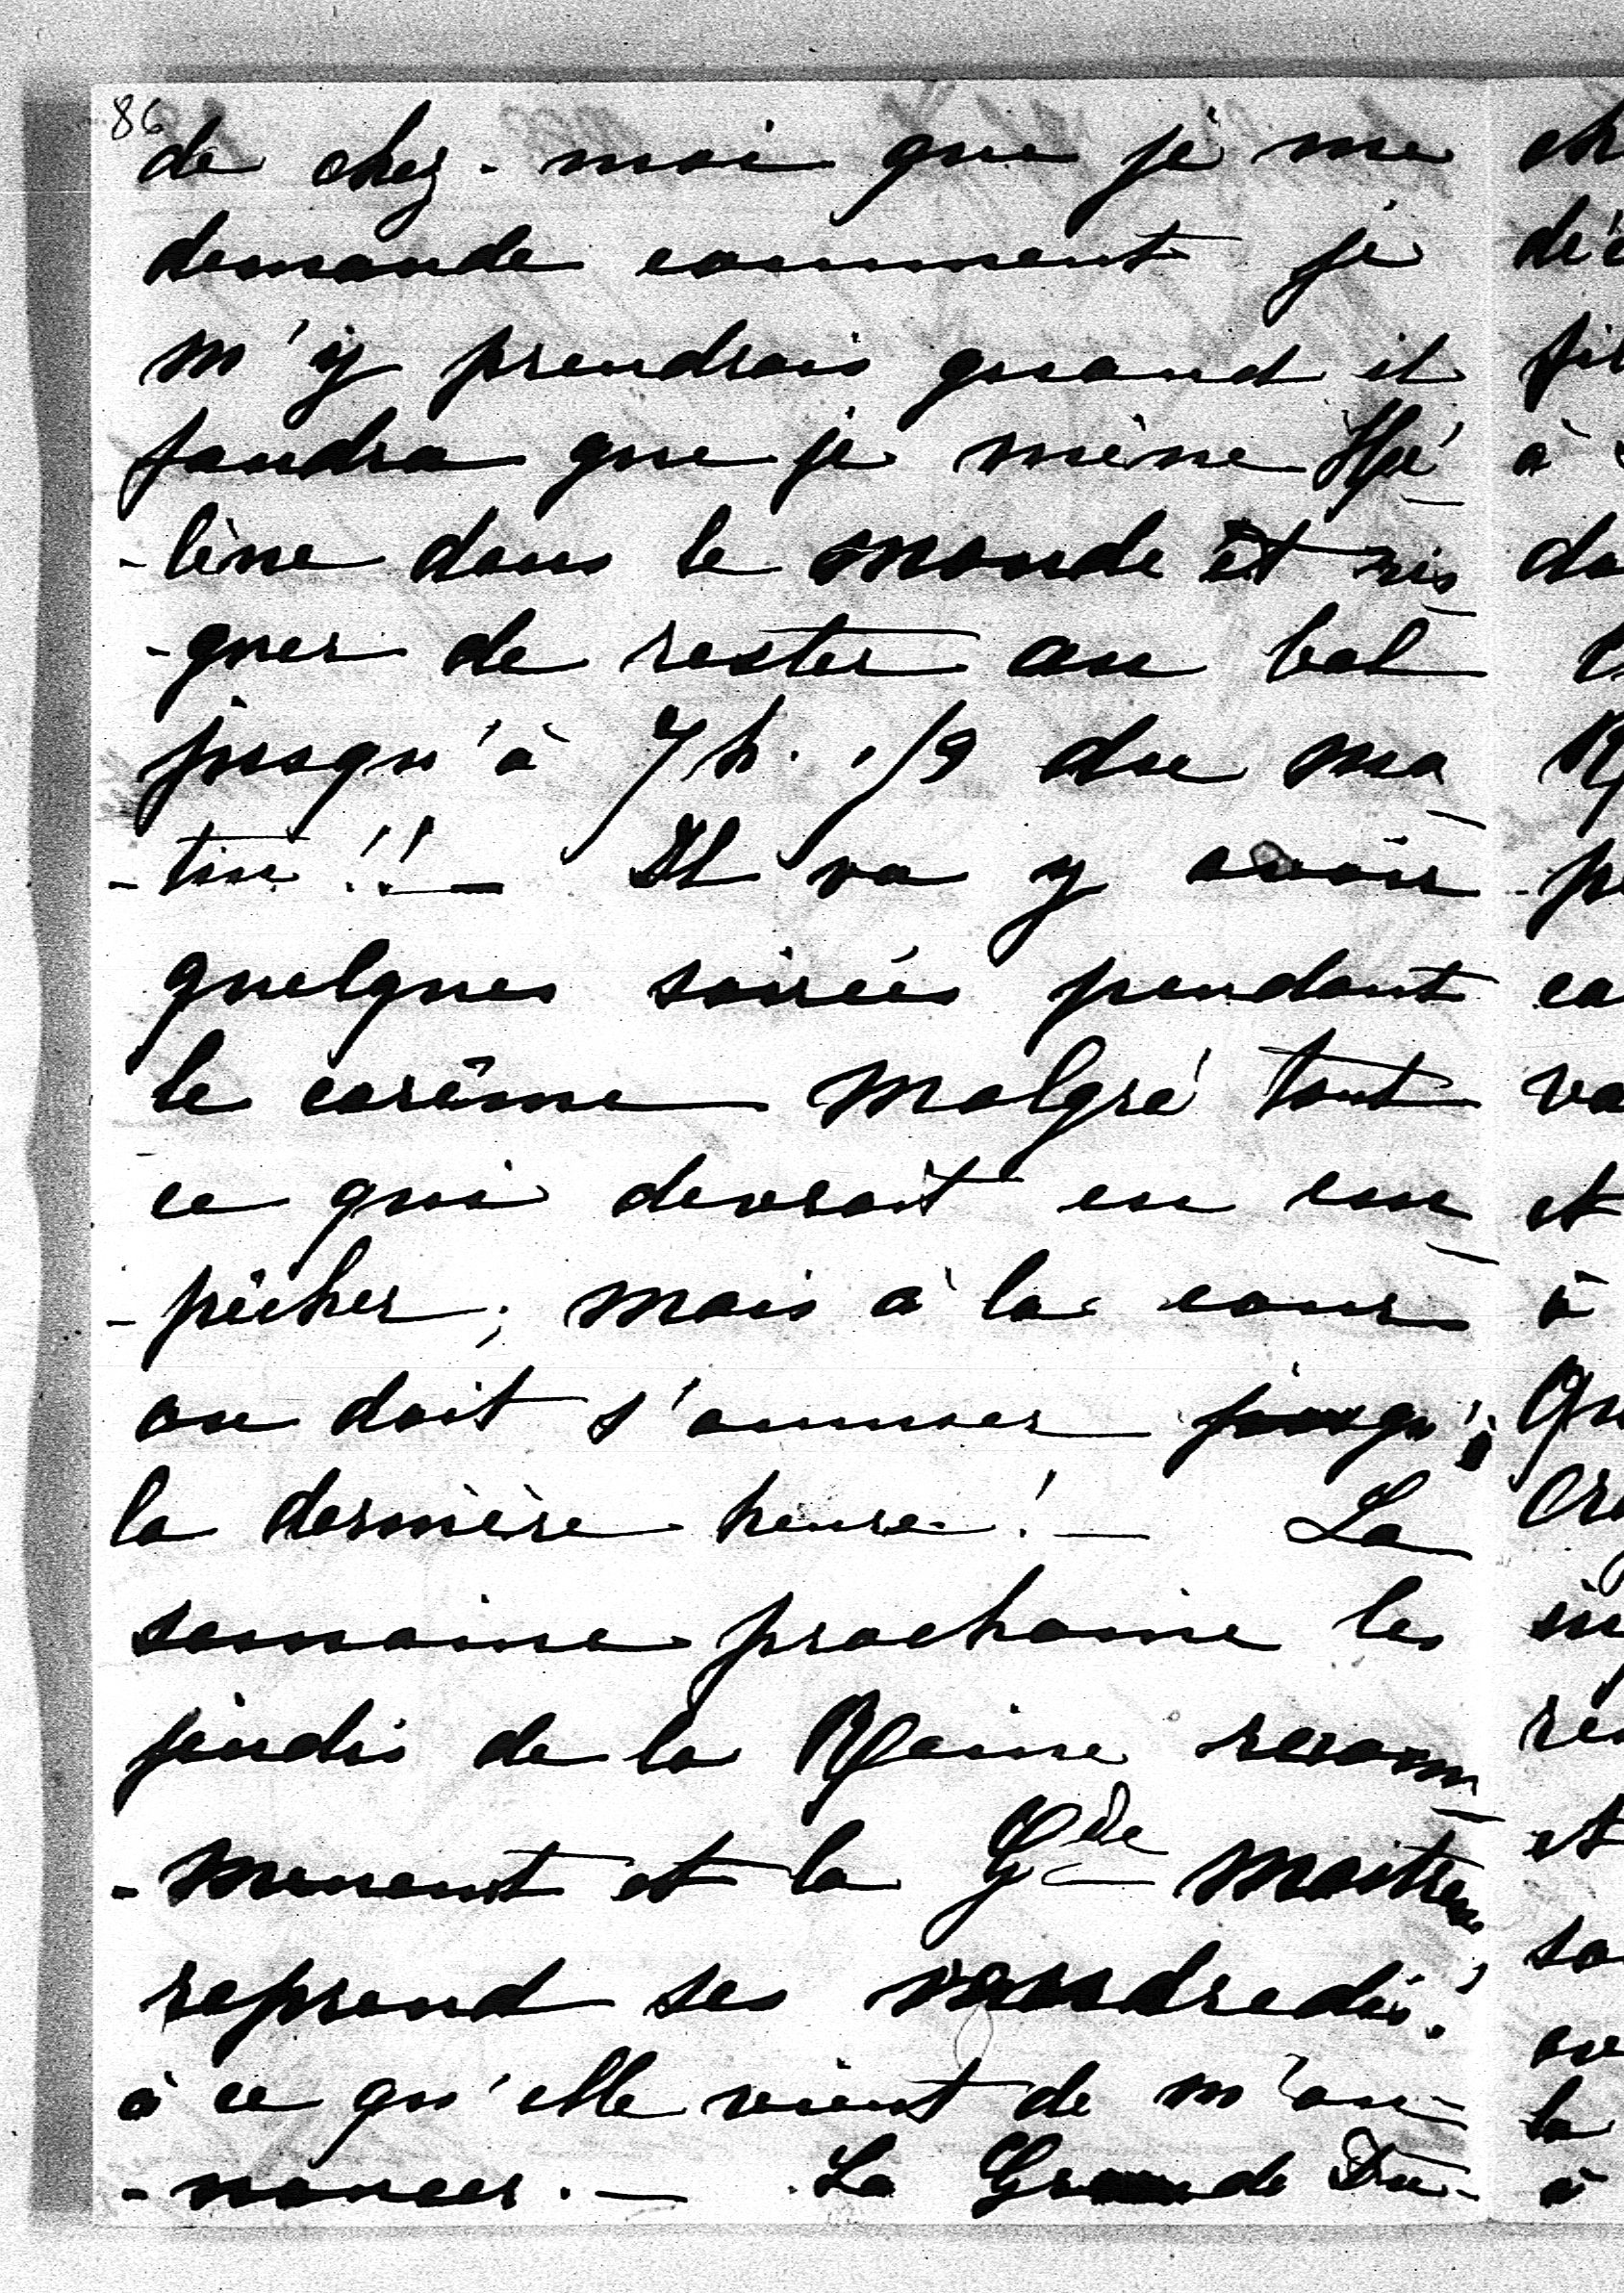 86
de chez-moi que je me
demande comment je
m'y prendrais quand il
faudra que je mène Hé-
-lène dans le monde et ris-
-quer de rester au bal
jusqu'à 7 h. 1/2 du ma-
-tin !! — Il va y avoir
quelques soirées pendant
le carême malgré tout
ce qui devrait en em-
-pêcher ; mais à la cour
on doit s'amuser jusqu'à
la dernière heure ! — La
semaine prochaine les
jeudis de la Reine recom-
-mencent et la Gde Maitresse
reprend ses vendredis,
à ce qu'elle vient de m'an-
-noncer. — La Grande Du-